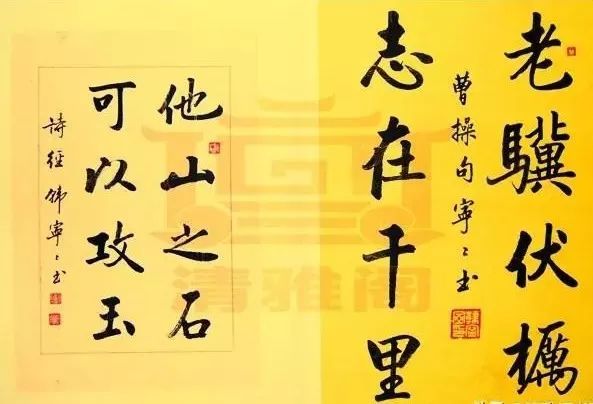 老驥伏櫔
志在千里
曹操句寧〻书
他山之石
可以攻玉
詩經韩寧〻书
清雅阁